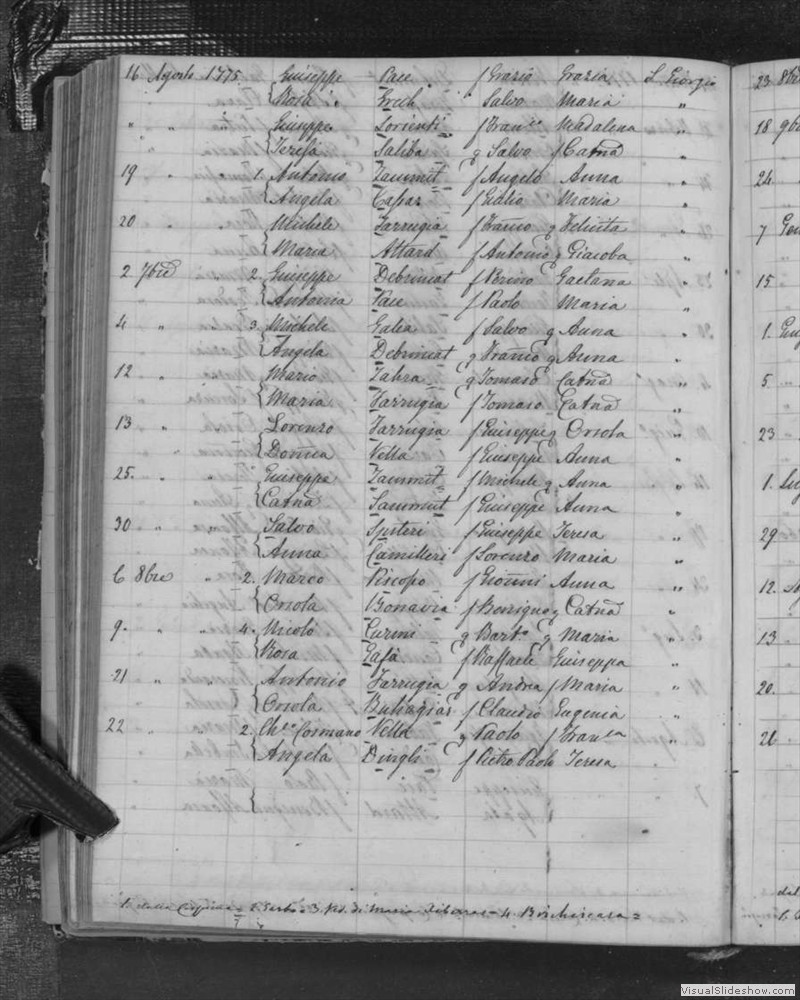 16 Agosto 1775 Giuseppe Pace f Grazio Grazia S. Giorgio 23 8b
{Rosa Grech " Salvo Maria "
" " " Giuseppe f Fran.co Madalena " 18 9b
{Teresa Saliba q Salvo f Catna "
19 " 1. Antonio Zammit f Angelo Anna " 24
{Angela Capar f Maria "
20 Michele Farrugia f Franco q Felicita " 7 Gen
{Maria Attard f Antonio q Giacoba "
2 7bre 2. Giuseppe Debrincat f Gaetana " 15
{Antonia Pace f Paolo Maria "
4 " 3. Michele Galea f Salvo q Anna " 1.
{Angela Debrincat q Franco q Anna "
12 " Mario Zahra q Tomaso Catna " 5
{Maria Farrugia f Tomaso Catna "
13 " Lorenzo Farrugia f Giuseppe q Orsola " 23
{Domca Vella f Giuseppe Anna "
25. " Giuseppe Zammit f Michele q Anna " 1.
{Catna Sammut f Giuseppe Anna "
30 " Salvo Spiteri f Giuseppe Teresa " 29
{Anna Camilleri f Lorenzo Maria "
6 8bre " 2. Marco Piscopo f Gionni Anna " 12.
{Orsola Bonavia f q Catna "
9. " 4. Nicolò Curmi q Bart.o q Maria " 13
{Rosa Gafà f Raffaele Giuseppa "
21 " Antonio Farrugia q Andrea f Maria " 20.
{Orsola Buhagiar f Claudio Eugenia "
22 " 2. Vella q Paolo f Fran.ca " 26
{Angela Dingli f Pietro Paolo Teresa "
{
1. della 3. di Maria 4.
VisualSlideshow.com